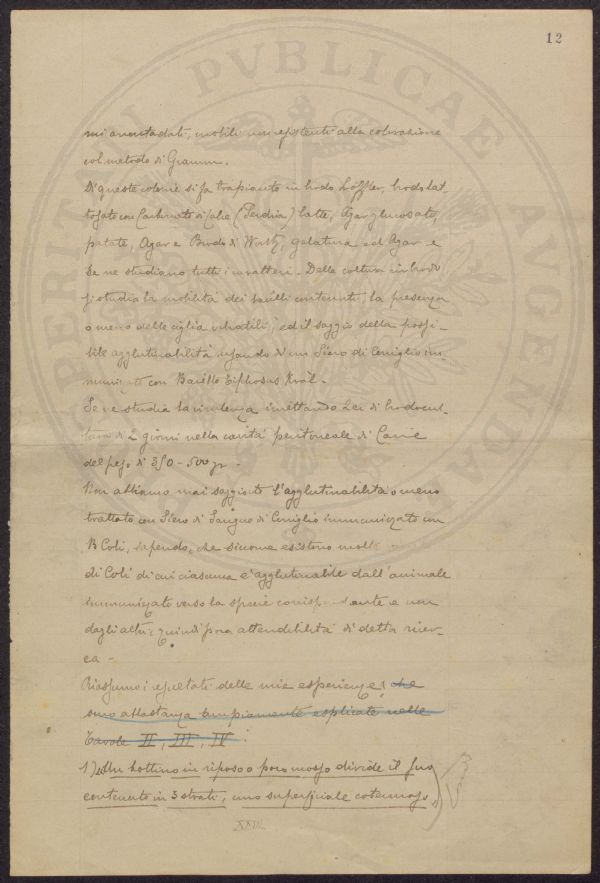 12
mi arrotondati, mobili non resistenti alla colorazione
col metodo di Gramm.
Di queste colonie si fa trapianto in brodo Löffler, brodo lat
tosato con Carbonato di Calce (Perdrix) latte, Agar glucosato,
patate, Agar e Brodo di Wurtz, gelatina ed Agar e
se ne studiano tutti i caratteri. Dalle colture in brodo
si studia la mobilità dei bacilli contenuti, la presenza
o meno delle ciglia vibratili, ed il saggio della possi-
bile agglutinabilità usando di un Siero di Coniglio im-
munizzato con Bacillo Tiphosus Král.
Se ne studia la virulenza iniettando 2cc di brodocul-
tura di 2 giorni nella cavità peritoneale di Cavie
del peso di 350-500 gr -
Non abbiamo mai saggiato l'agglutinabilità o meno
trattato con Siero di Sangue di Coniglio immunizzato con
B Coli, sapendo, che siccome esistono molte
di Coli di cui ciascuna è agglutinabile dall'animale
immunizzato verso la specie corrispondente e non
dagli altri, quindi poca attendibilità di detta ricer-
ca -
Riassumo i resultati delle mie esperienze, che
sono abbastanza ampiamente esplicate nelle
Tavole II, III, IV:
1) Un bottino in riposo o poco mosso divide il suo
contenuto in 3 strati, uno superficiale cotennoso,
XXVI
SALVTI PVBLICAE AVGENDAE